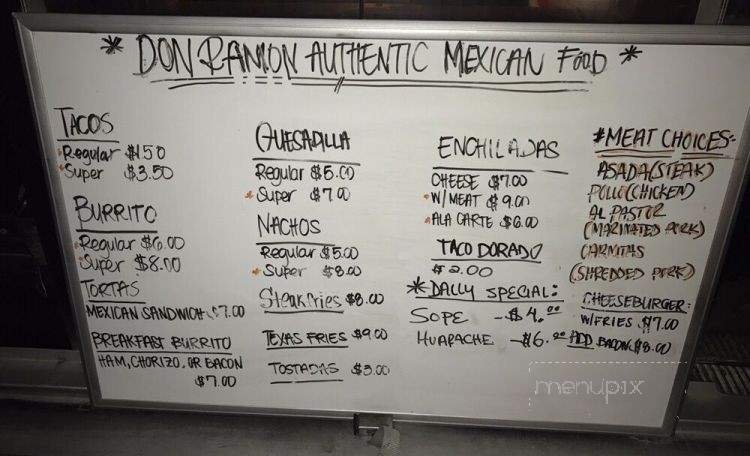 * DON RAMON AUTHENTIC MEXICAN FOOD *
TACOS
Regular $1.50
Super $3.50
BURRITO
Regular $6.00
Super $8.00
TORTAS
MEXICAN SANDWICH $7.00
BREAKFAST BURRITO
HAM, CHORIZO, OR BACON
$7.00
QUESADILLA
Regular $5.00
Super $7.00
NACHOS
Regular $5.00
Super $8.00
Steak fries $8.00
TEXAS FRIES $9.00
TOSTADAS $3.00
ENCHILADAS
CHEESE $7.00
W/MEAT $9.00
ALA CARTE $6.00
TACO DORADO
$2.00
*DAILY SPECIAL:
SOPE -$4.00
HUARACHE -$6.00
*MEAT CHOICES-
ASADA(STEAK)
POLLO(CHICKEN)
AL PASTOR
(MARINATED PORK)
CARNITAS
(SHREDDED PORK)
CHEESEBURGER:
W/FRIES $7.00
ADD BACON $8.00
menupix